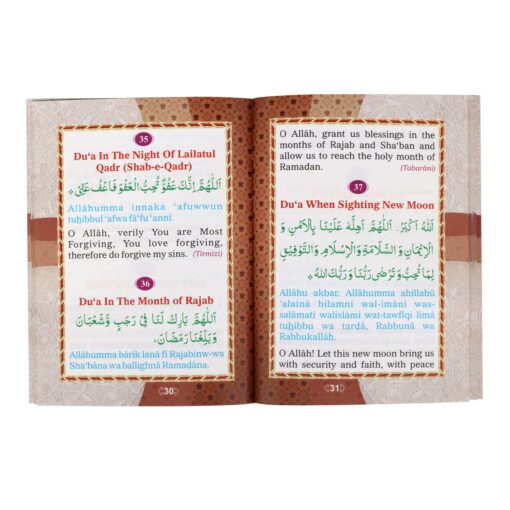 35
Du‘a In The Night Of Lailatul
Qadr (Shab-e-Qadr)
اَللّٰهُمَّ اِنَّكَ عَفُوٌّ تُحِبُّ الْعَفْوَ فَاعْفُ عَنِّيْ
Allâhumma innaka ‘afuwwun
tuḥibbul ‘afwa fâ‘fu ‘annî.
O Allâh, verily You are Most
Forgiving, You love forgiving,
therefore do forgive my sins. (Tirmizi)
36
Du‘a In The Month of Rajab
اَللّٰهُمَّ بَارِكْ لَنَا فِيْ رَجَبٍ وَّشَعْبَانَ
وَبَلِّغْنَا رَمَضَانَ.
Allâhumma bârik lanâ fî Rajabinw-wa
Sha‘bâna wa ballighnâ Ramadâna.
30
O Allâh, grant us blessings in the
months of Rajab and Sha‘ban and
allow us to reach the holy month of
Ramadan. (Tabarâni)
37
Du‘a When Sighting New Moon
اَللّٰهُ اَكْبَرُ. اَللّٰهُمَّ اَهِلَّهٗ عَلَيْنَا بِالْاَمْنِ وَ
الْاِيْمَانِ وَالسَّلَامَةِ وَالْاِسْلَامِ، وَالتَّوْفِيْقِ
لِمَا تُحِبُّ وَتَرْضٰى رَبُّنَا وَرَبُّكَ اللهُ
Allâhu akbar. Allâhumma ahillahû
‘alainâ bilamni wal-imâni was-
salâmati walislâmi wat-tawfiqi limâ
tuḥibbu wa tarḍâ, Rabbunâ wa
Rabbukallâh.
O Allâh! Let this new moon bring us
with security and faith, with peace
31